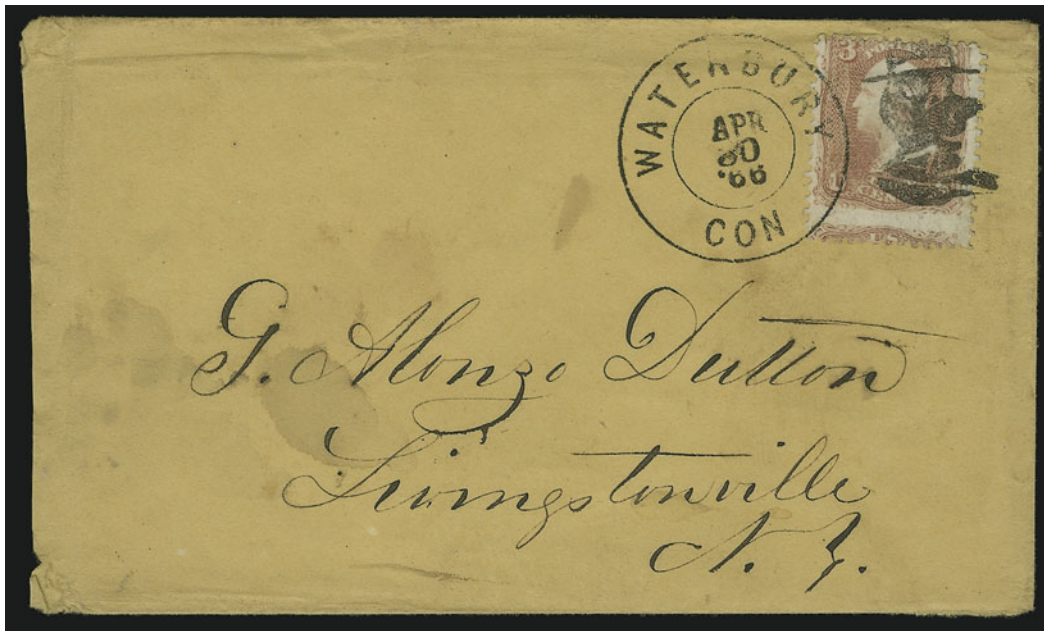 WATERBURY
APR
30
'66
CON
3
G. Alonzo Dutton
Livingstonville
N. Y.